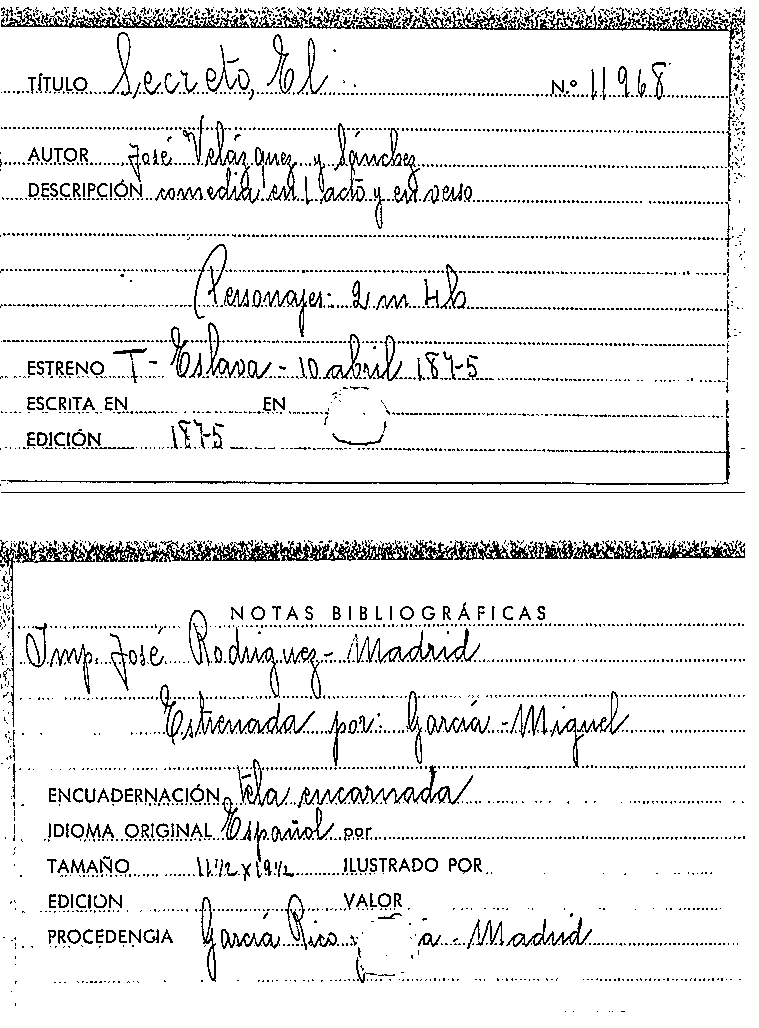 TÍTULO Secreto, El N.º 11968
AUTOR José Velázquez y Sánchez
DESCRIPCIÓN comedia en 1 acto y en verso
Personajes: 2 m 4 h
ESTRENO T- Eslava - 10 abril 1875
ESCRITA EN EN
EDICIÓN 1875
NOTAS BIBLIOGRÁFICAS
Imp. José Rodriguez - Madrid
Estrenada por: García - Miguel
ENCUADERNACIÓN tela encarnada
IDIOMA ORIGINAL Español por
TAMAÑO 11 1/2 x 19 1/2 ILUSTRADO POR
EDICION VALOR
PROCEDENCIA García Rico - Madrid